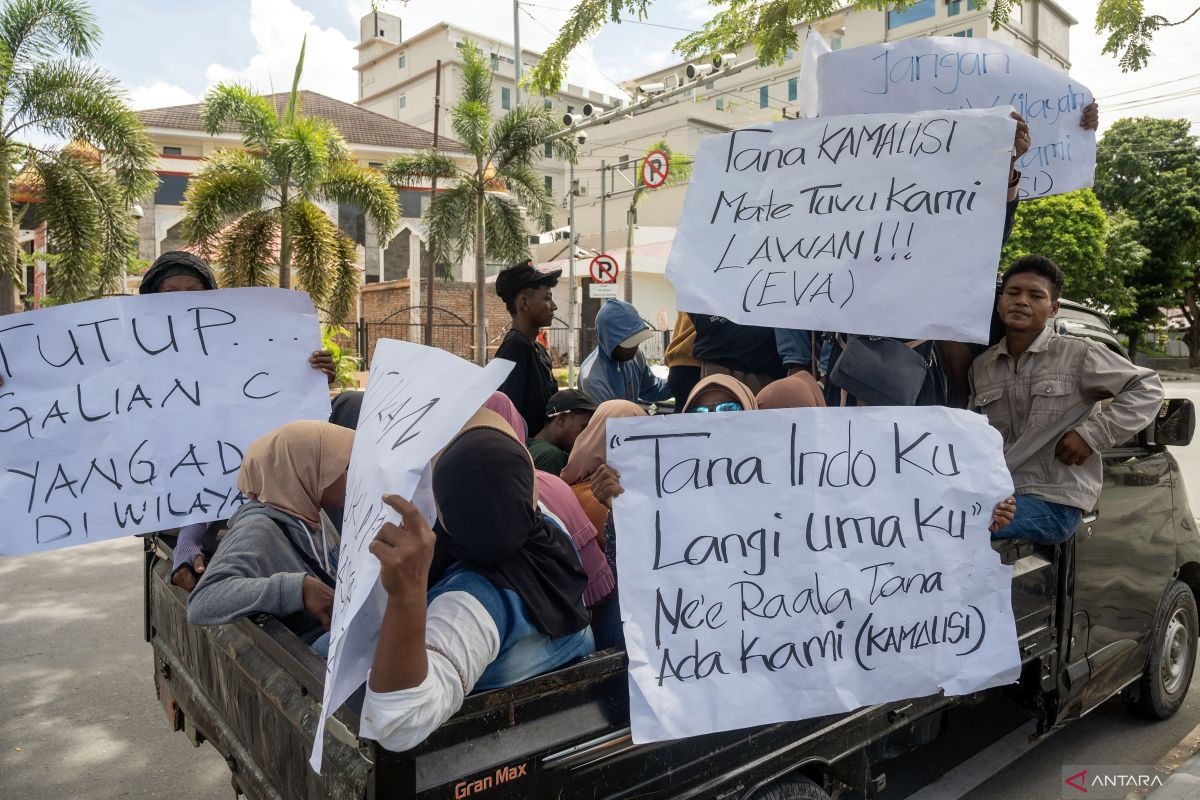 TUTUP....
GALIAN C
YANG AD
DI WILAYA
Jangan
Wilayah
ami
Tana KAMALISI
Mate Tuvu Kami
LAWAN!!!
(EVA)
"Tana Indo Ku
Langi uma Ku"
Ne'e Raala Tana
Ada Kami (KAMALISI)
Gran Max
ANTARA